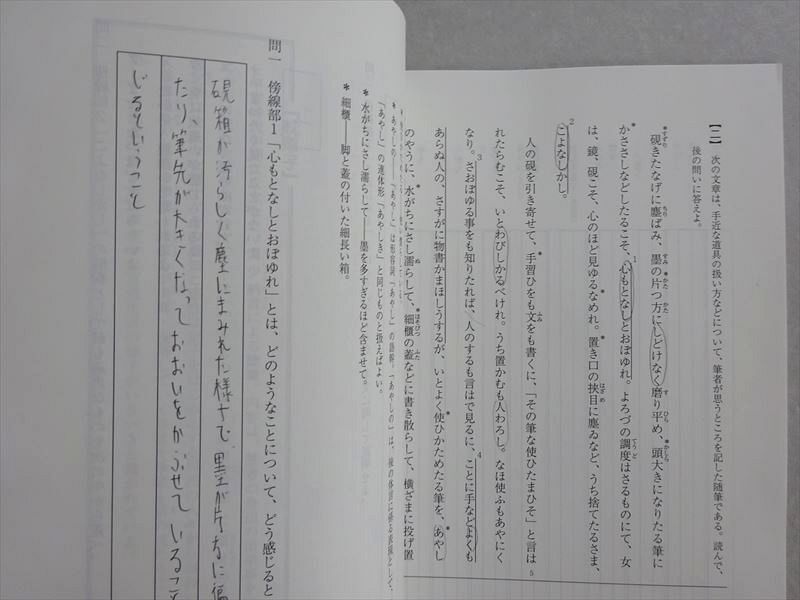 【二】 次の文章は、手近な道具の扱い方などについて、筆者が思うところを記した随筆である。読んで、
後の問いに答えよ。
硯きたなげに塵ばみ、墨の片つ方にしどけなく磨り平め、頭大きになりたる筆に
かささしなどしたるこそ、心もとなしとおぼゆれ。よろづの調度はさるものにて、女
は、鏡、硯こそ、心のほど見ゆるなめれ。置き口の挟目に塵ゐなど、うち捨てたるさま、
こよなしかし。
人の硯を引き寄せて、手習ひをも文をも書くに、「その筆な使ひたまひそ」と言は
れたらむこそ、いとわびしかるべけれ。うち置かむも人わろし。なほ使ふもあやにく
なり。さおぼゆる事をも知りたれば、人のするも言はで見るに、ことに手などよくも
あらぬ人の、さすがに物書かまほしうするが、いとよく使ひかためたる筆を、あやし
のやうに、水がちにさし濡らして、細櫃の蓋などに書き散らして、横ざまに投げ置
「あやし」の連体形「あやしき」と同じものと扱えばよい。
*水がちにさし濡らして――墨を多すぎるほど含ませて。
*細櫃――脚と蓋の付いた細長い箱。
問一 傍線部1「心もとなしとおぼゆれ」とは、どのようなことについて、どう感じると
硯箱が汚らしく塵にまみれた様子で、墨が片方に偏
たり、筆先が大きくなっておおいをかぶせていること
じるということ